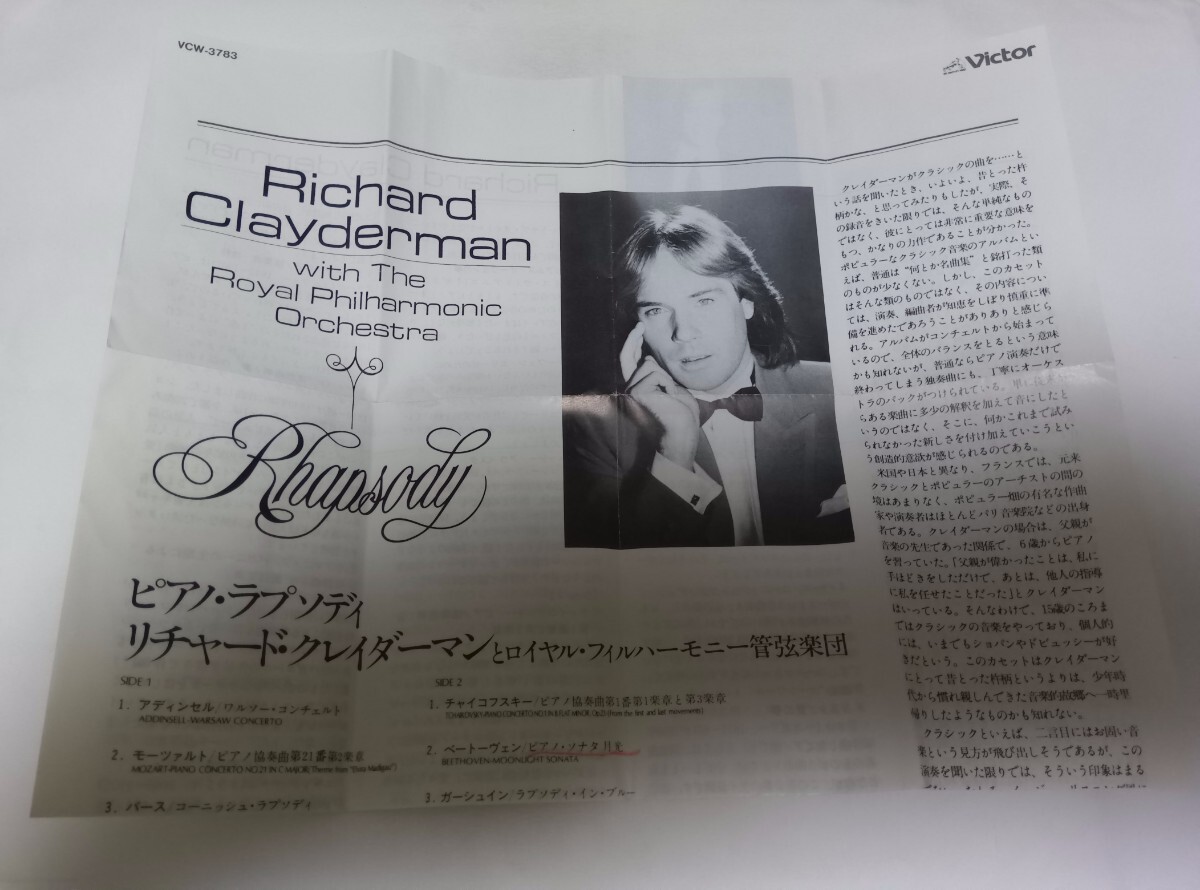 VCW-3783
Victor
Richard
Clayderman
with The
Royal Philharmonic
Orchestra
Rhapsody
ピアノ・ラプソディ
リチャード・クレイダーマンとロイヤル・フィルハーモニー管弦楽団
SIDE-1
1. アディンセル/ワルソー・コンチェルト
ADDINSELL-WARSAW CONCERTO
2. モーツァルト/ピアノ協奏曲第21番第2楽章
MOZART-PIANO CONCERTO NO.21 IN C MAJOR (Theme from "Elvira Madigan")
3. バース/コーニッシュ・ラプソディ
SIDE 2
1. チャイコフスキー/ピアノ協奏曲第1番第1楽章と第3楽章
TCHAIKOVSKY-PIANO CONCERTO NO.1 IN B FLAT MINOR, Op.23 (from the first and last movements)
2. ベートーヴェン/ピアノ・ソナタ月光
BEETHOVEN-MOONLIGHT SONATA
3. ガーシュイン/ラプソディ・イン・ブルー
クレイダーマンがクラシックの曲を……と
いう話を聞いたとき、いよいよ、昔とった杵
柄かな、と思ってみたりもしたが、実際、そ
の録音をきいた限りでは、そんな単純なもの
ではなく、彼にとっては非常に重要な意味を
もつ、かなりの力作であることが分かった。
ポピュラーなクラシック音楽のアルバムとい
えば、普通は“何とか名曲集”と銘打った類
のものが少なくない。しかし、このカセット
はそんな類のものではなく、その内容につい
ては、演奏、編曲者が知恵をしぼり慎重に準
備を進めたであろうことがありありと感じら
れる。アルバムがコンチェルトから始まって
いるので、全体のバランスをとるという意味
かも知れないが、普通ならピアノ演奏だけで
終わってしまう独奏曲にも、丁寧にオーケス
トラのバックがつけられている。単に
らある楽曲に多少の解釈を加えて音にしたと
いうのではなく、そこに、何かこれまで試み
られなかった新しさを付け加えていこうとい
う創造的意欲が感じられるのである。
米国や日本と異なり、フランスでは、元来
クラシックとポピュラーのアーチストの間の
境はあまりなく、ポピュラー畑の有名な作曲
家や演奏者はほとんどパリ音楽院などの出身
者である。クレイダーマンの場合は、父親が
音楽の先生であった関係で、6歳からピアノ
を習っていた。「父親が偉かったことは、私に
手ほどきをしただけで、あとは、他人の指導
に私を任せたことだった」とクレイダーマン
はいっている。そんなわけで、15歳のころま
ではクラシックの音楽をやっており、個人的
には、いまでもショパンやドビュッシーが好
きだという。このカセットはクレイダーマン
にとって昔とった杵柄というよりは、少年時
代から慣れ親しんできた音楽的故郷へ一時里
帰りしたようなものかも知れない。
クラシックといえば、二言目にはお固い音
楽という見方が飛び出しそうであるが、この
演奏を聞いた限りでは、そういう印象はまる